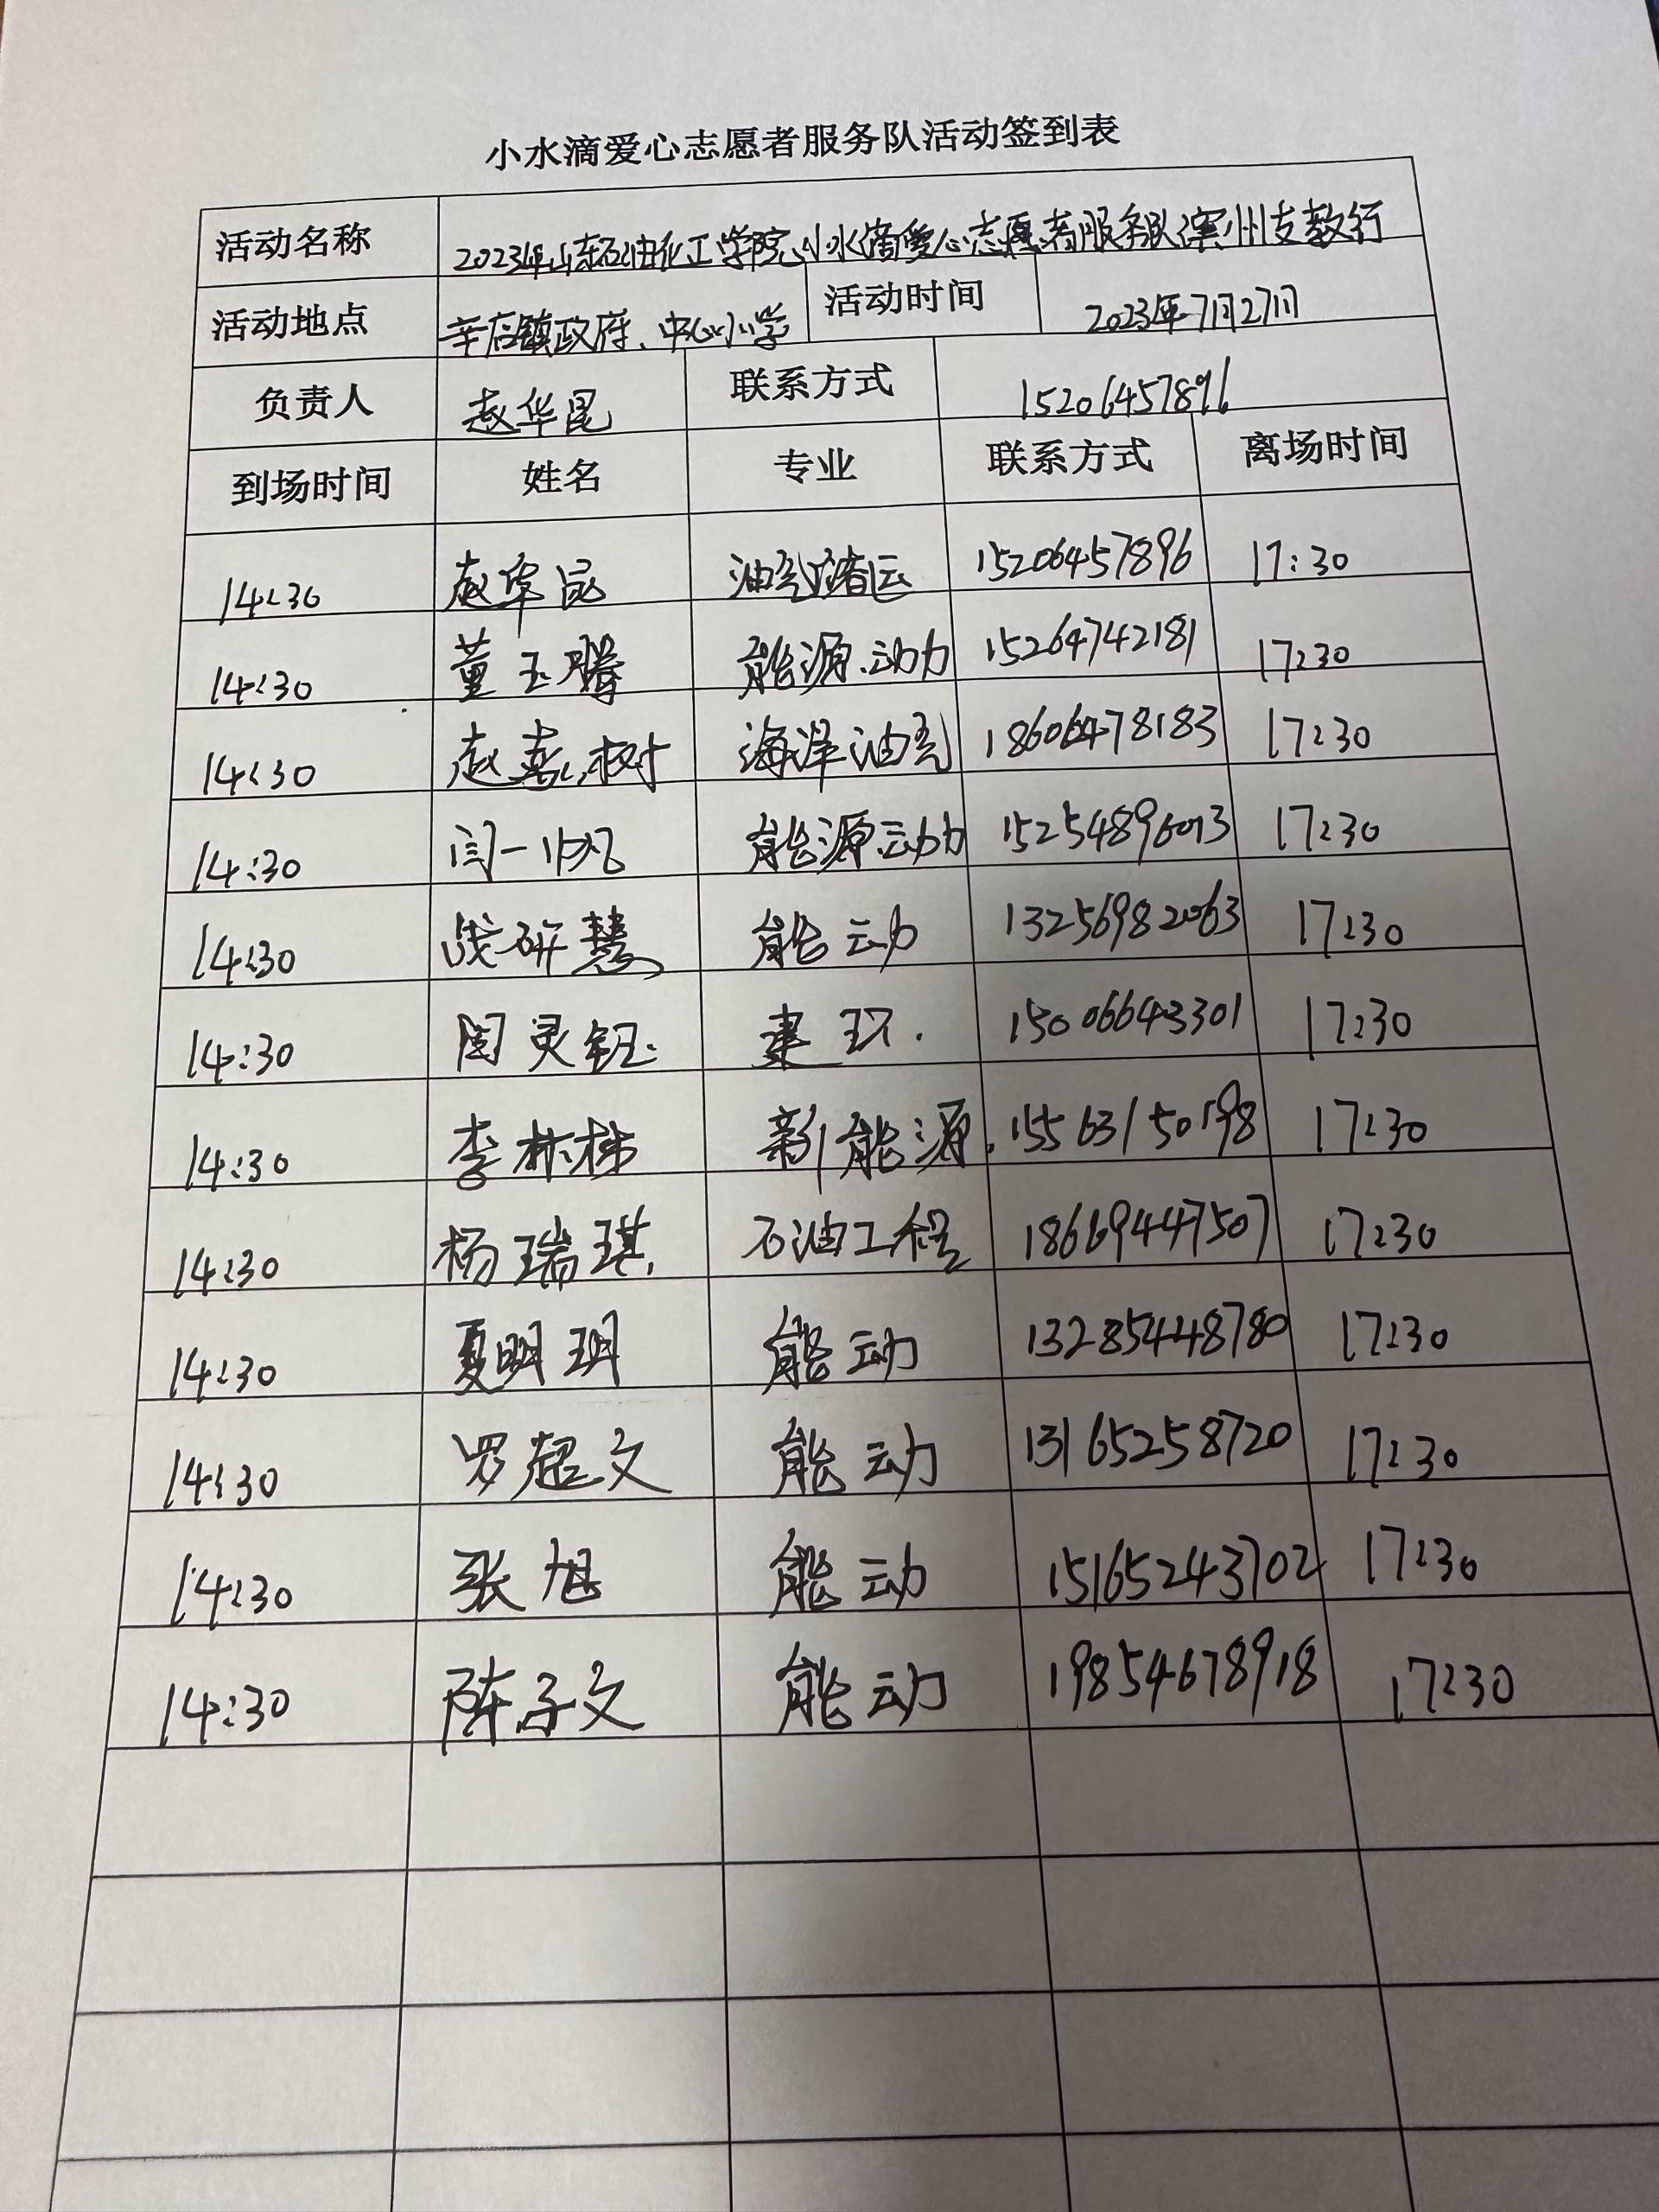 小水滴爱心志愿者服务队活动签到表
活动名称 2023年山东石油化工学院小水滴爱心志愿者服务队滨州支教行
活动地点 辛店镇政府、中心小学 活动时间 2023年7月27日
负责人 赵华昆 联系方式 15206457896
到场时间 姓名 专业 联系方式 离场时间
14:30 赵华昆 油气储运 15206457896 17:30
14:30 董玉腾 能源动力 15264742181 17:30
14:30 赵嘉树 海洋油气 18606478183 17:30
14:30 闫一帆 能源动力 15254896013 17:30
14:30 战研慧 能动 13256982063 17:30
14:30 周灵钰 建环. 15006643301 17:30
14:30 李林栋 新能源. 15563150198 17:30
14:30 杨瑞琪 石油工程 18669447507 17:30
14:30 夏明玥 能动 13285448780 17:30
14:30 罗超文 能动 13165258720 17:30
14:30 张旭 能动 15165243702 17:30
14:30 陈子文 能动 19854678918 17:30